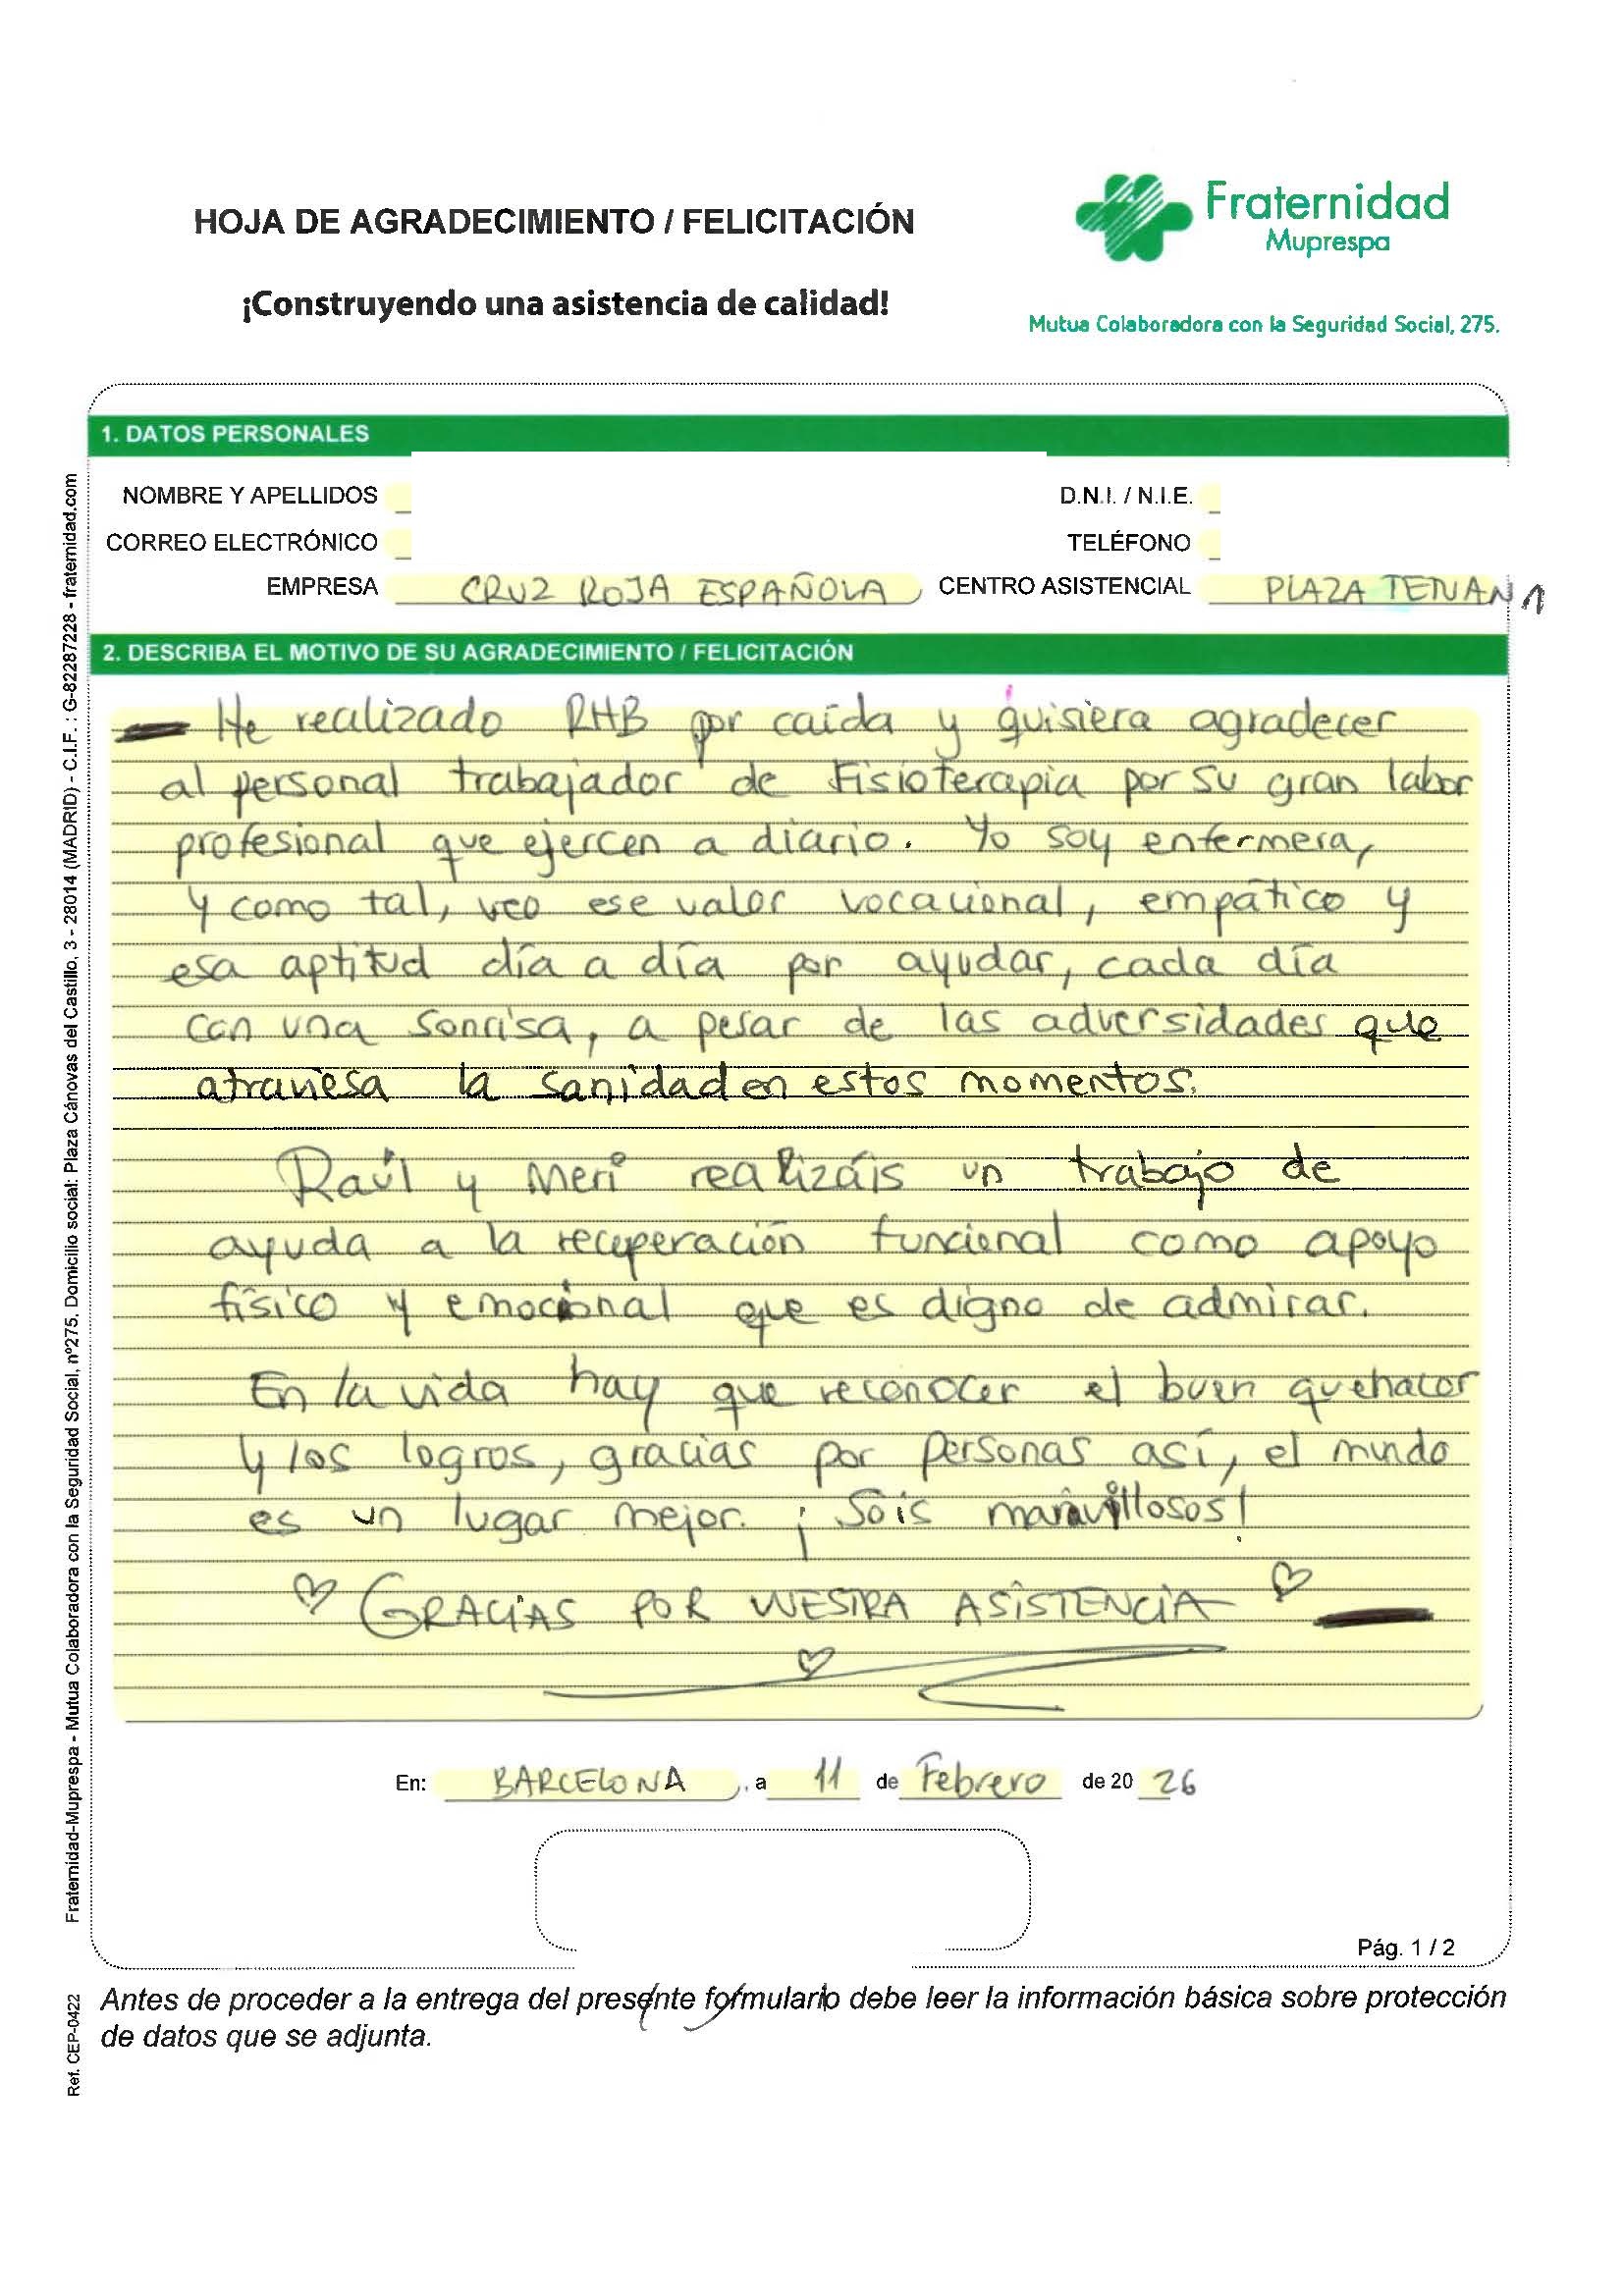 HOJA DE AGRADECIMIENTO / FELICITACIÓN
¡Construyendo una asistencia de calidad!
Fraternidad
Muprespa
Mutua Colaboradora con la Seguridad Social, 275.
1. DATOS PERSONALES
NOMBRE Y APELLIDOS
D.N.I. / N.I.E.
CORREO ELECTRÓNICO
TELÉFONO
EMPRESA CRUZ ROJA ESPAÑOLA CENTRO ASISTENCIAL PLAZA TETUAN 1
2. DESCRIBA EL MOTIVO DE SU AGRADECIMIENTO / FELICITACIÓN
He realizado RHB por caída y quisiera agradecer
al personal trabajador de Fisioterapia por su gran labor
profesional que ejercen a diario. Yo soy enfermera,
y como tal, veo ese valor vocacional, empático y
esa aptitud día a día por ayudar, cada día
con una sonrisa, a pesar de las adversidades que
atraviesa la sanidad en estos momentos.
Raúl y Meri realizáis un trabajo de
ayuda a la recuperación funcional como apoyo
físico y emocional que es digno de admirar.
En la vida hay que reconocer el buen quehacer
y los logros, gracias por personas así, el mundo
es un lugar mejor. ¡Sois maravillosos!
GRACIAS POR VUESTRA ASISTENCIA
En: BARCELONA, a 11 de Febrero de 20 26
Pág. 1 / 2
Antes de proceder a la entrega del presente formulario debe leer la información básica sobre protección
de datos que se adjunta.
Fraternidad-Muprespa - Mutua Colaboradora con la Seguridad Social, nº275, Domicilio social: Plaza Cánovas del Castillo, 3 - 28014 (MADRID) - C.I.F. : G-82287228 - fraternidad.com
Ref. CEP-0422